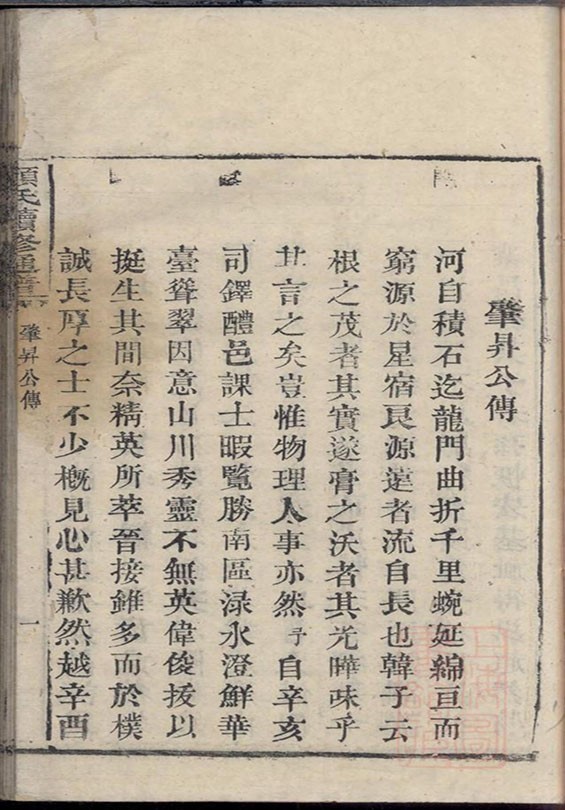 肇昇公傳
河自積石迄龍門曲折千里蜿延綿亘而
窮源於星宿良源遠者流自長也韓子云
根之茂者其實遂膏之沃者其光曄味乎
其言之矣豈惟物理人事亦然予自辛亥
司鐸醴邑課士暇覽勝南區淥水澄鮮華
臺聳翠因意山川秀靈不無英偉俊拔以
挺生其間奈精英所萃晉接雖多而於樸
誠長厚之士不少概見心甚歉然越辛酉
氏續修通譜
肇昇公傳
一